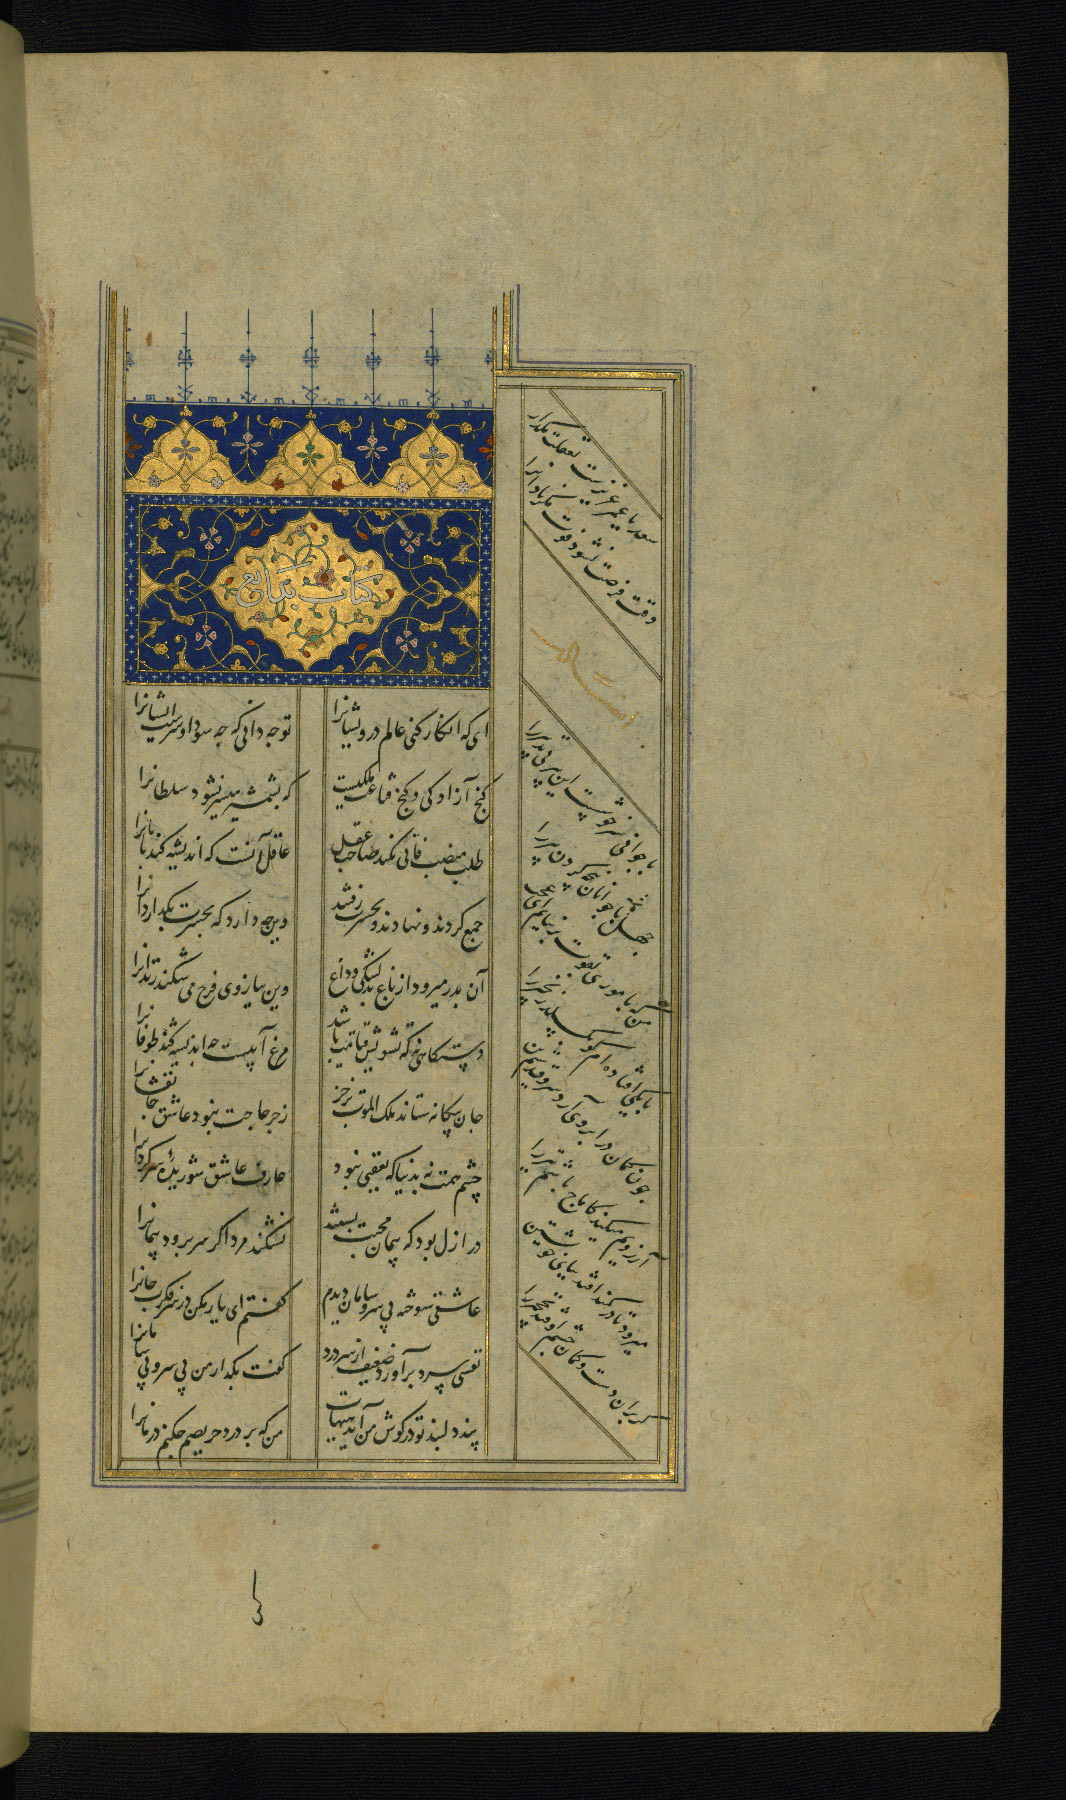 کتاب بدایع
ای که انکار کنی عالم درویشانرا تو چه دانی که چه سودا و سرست ایشانرا
کنج آزادکی و کنج قناعت ملکیست که بشمشیر میسر نشود سلطانرا
طلب منصب فانی نکند صاحب عقل عاقل آنست که اندیشه کند پایانرا
جمع کردند و نهادند و بحسرت رفتند وین چه دارد که بحسرت بکذارد آنرا
آن بدر میرود از باغ بدلتنکی و داغ وین ببازوی فرح می شکند زندانرا
دستکاهی نه که تشویش قیامت باشد مرغ آبیست چه اندیشه کند طوفانرا
جان بیکانه ستاند ملک الموت بزجر زجر حاجت نبود عاشق جان افشانرا
چشم همت نه بدنیا که بعقبی نبود عارف عاشق شوریده سرکردانرا
در ازل بود که پیمان محبت بستند نشکند مرد اکر سر برود پیمانرا
عاشقی سوخته بی سر و سامان دیدم کفتم ای یار مکن در سر فکرت جانرا
نفسی سرد برآورد ضعیف از سر درد کفت بکذار من بی سر و بی سامانرا
پند دلبند تو در کوش من آید هیهات من که بر درد حریصم چکنم درمانرا
سعدیا عمر عزیزست بغفلت مکذار
وقت فرصت نشود فوت مکر نادانرا
با جوانی سر خوشست این پیر بی تدبیر را
جهل باشد با جوانان پنجه کردن پیر را
من که با موری بقوت برنیایم ای عجب
با یکی افتاده ام کو بکسلد زنجیر را
چون کمان در آرد سرو قد سیمتن
آرزویم میکند کاماج باشم تیر را
میرود تا در کمند افتد بپای خویشتن
کر بر آن دست و کمان چشم اوفتد نخجیر را